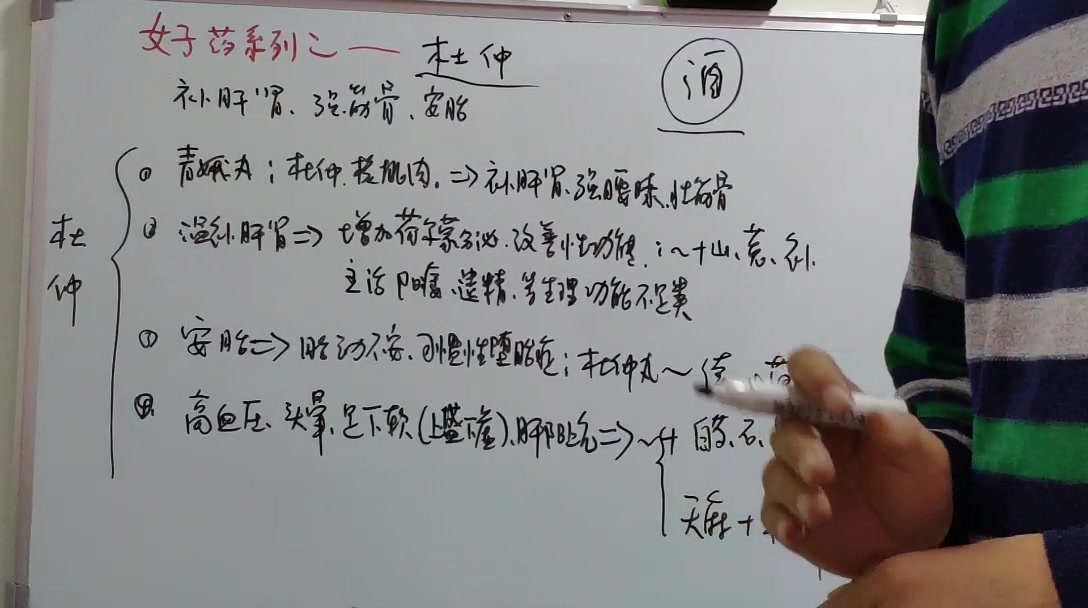 女子药系列之一 杜仲
酒
补肝肾、强筋骨、安胎
杜仲
① 青娥丸：杜仲.核桃肉。⇒补肝肾、强腰膝、壮筋骨
② 温补肝肾⇒增加荷尔蒙分泌.改善性功能：~+山、萸、补.
主治阳痿、遗精、等生理功能不足类
① 安胎⇒胎动不安、习惯性堕胎症；杜仲丸~续
④ 高血压、头晕、足下软(上盛下虚)、肝阳上亢⇒~+白芍、石、
天麻+